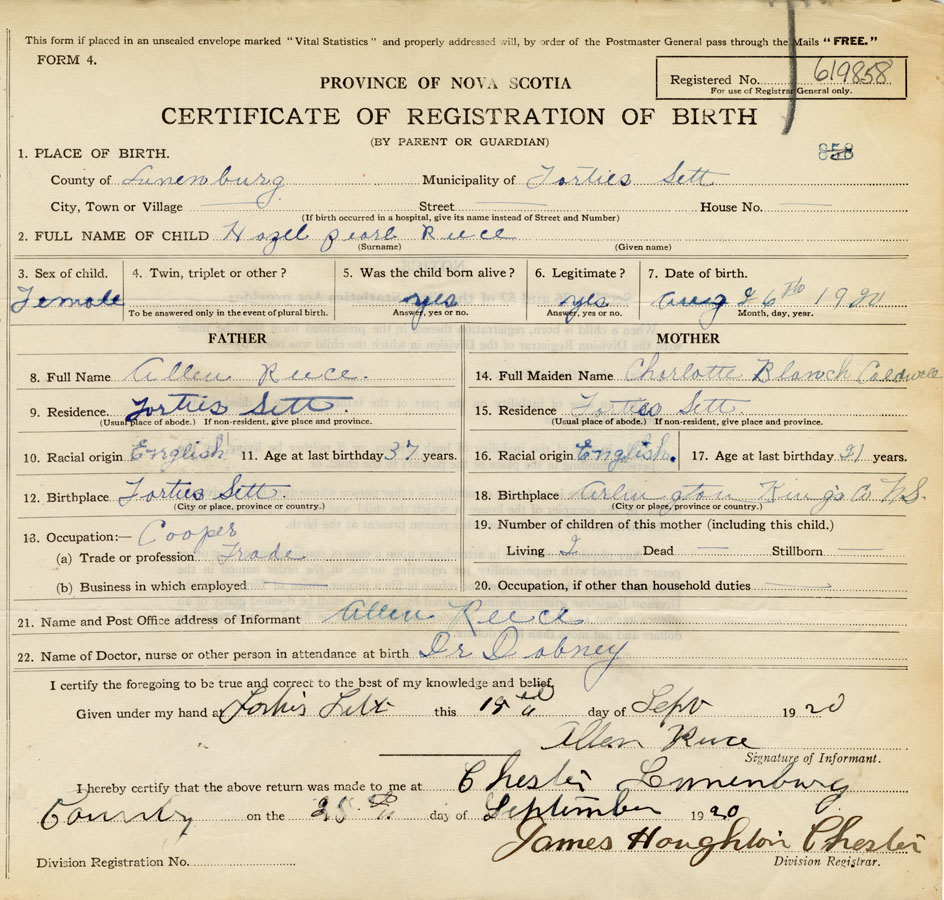 This form if placed in an unsealed envelope marked "Vital Statistics" and properly addressed will, by order of the Postmaster General pass through the Mails "FREE."
FORM 4.
Registered No. 619858
For use of Registrar General only.
PROVINCE OF NOVA SCOTIA
CERTIFICATE OF REGISTRATION OF BIRTH
(BY PARENT OR GUARDIAN)
858
1. PLACE OF BIRTH.
County of Lunenburg Municipality of Forties Sett
City, Town or Village Street House No.
(If birth occurred in a hospital, give its name instead of Street and Number)
2. FULL NAME OF CHILD Hazel Pearl Reece
(Surname) (Given name)
3. Sex of child. 4. Twin, triplet or other? 5. Was the child born alive? 6. Legitimate? 7. Date of birth.
Female yes yes Aug 26th 1920
To be answered only in the event of plural birth. Answer, yes or no. Answer, yes or no. Month, day, year.
FATHER MOTHER
8. Full Name Allen Reece. 14. Full Maiden Name Charlotte Blanch Caldwell
9. Residence. Forties Sett. 15. Residence Forties Sett.
(Usual place of abode.) If non-resident, give place and province. (Usual place of abode.) If non-resident, give place and province.
10. Racial origin English 11. Age at last birthday 37 years. 16. Racial origin English. 17. Age at last birthday years.
12. Birthplace Forties Sett. 18. Birthplace Arlington Kings Co N.S.
(City or place, province or country.) (City or place, province or country.)
13. Occupation:— Cooper 19. Number of children of this mother (including this child.)
(a) Trade or profession Trade Living 2 Dead Stillborn
(b) Business in which employed 20. Occupation, if other than household duties
21. Name and Post Office address of Informant Allen Reece
22. Name of Doctor, nurse or other person in attendance at birth Dr Dobney
I certify the foregoing to be true and correct to the best of my knowledge and belief.
Given under my hand at Forties Sett this day of Sept 1920
Allen Reece
Signature of Informant.
I hereby certify that the above return was made to me at Chester Lunenburg
County on the 25th day of September 1920
James Houghton Chester
Division Registration No. Division Registrar.